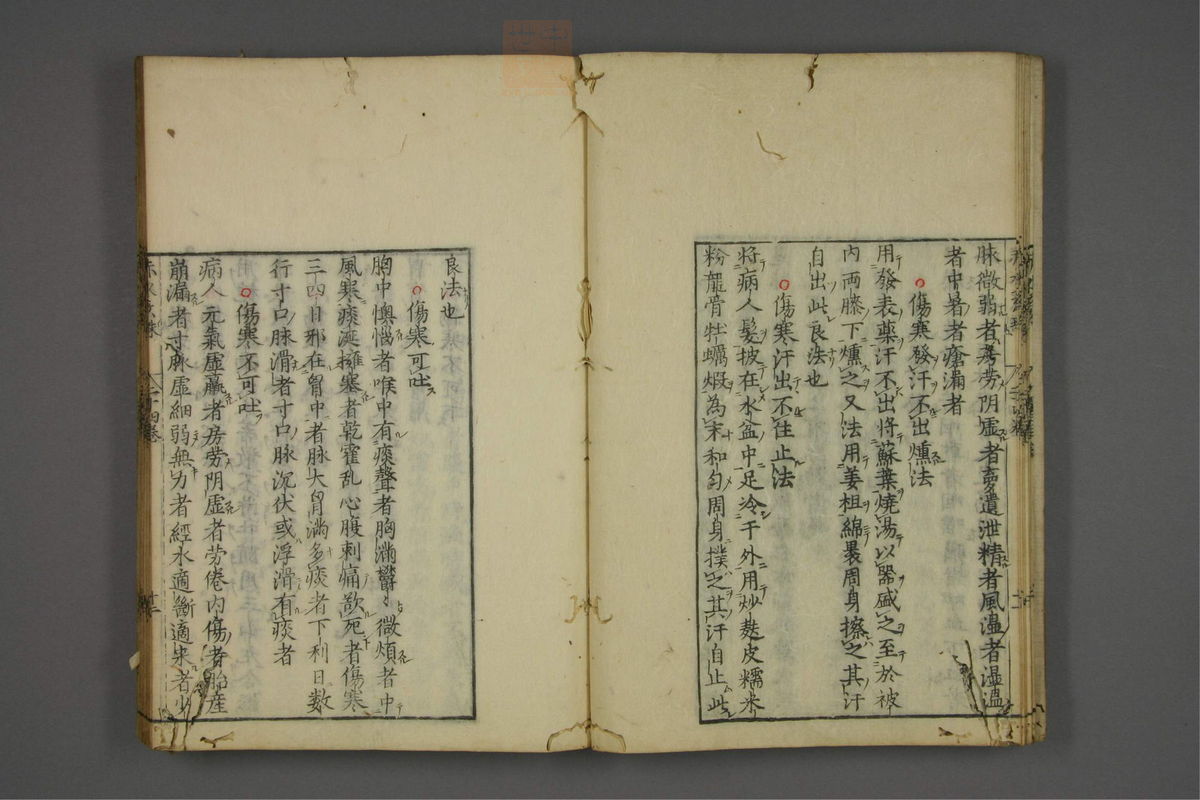 脉微弱者房劳阴虚者夣遺泄精者風温者湿温
者中暑者瘡漏者
傷寒發汗不出燻法
用發表藥汗不出將蘇葉燒湯以器盛之至於被
内両膝下燻之又法用姜粗綿裹周身擦之其汗
自出此良法也
傷寒汗出不住止法
将病人髮披在水盆中足冷于外用炒麩皮糯米
粉龍骨牡蠣煅為末和匀周身撲之其汗自止此
良法也
傷寒可吐
胸中懊憹者喉中有痰聲者胸滿欝々微煩者中
風寒痰涎擁塞者乾霍乱心腹刺痛欲死者傷寒
三四日邪在胷中者脉大胷滿多痰者下利日數
行寸口脉滑者寸口脉沉伏或浮滑有痰者
傷寒不可吐
病人元氣虛羸者房劳阴虛者劳倦内傷者胎産
崩漏者寸脉虛細弱無力者經水適斷適来者少